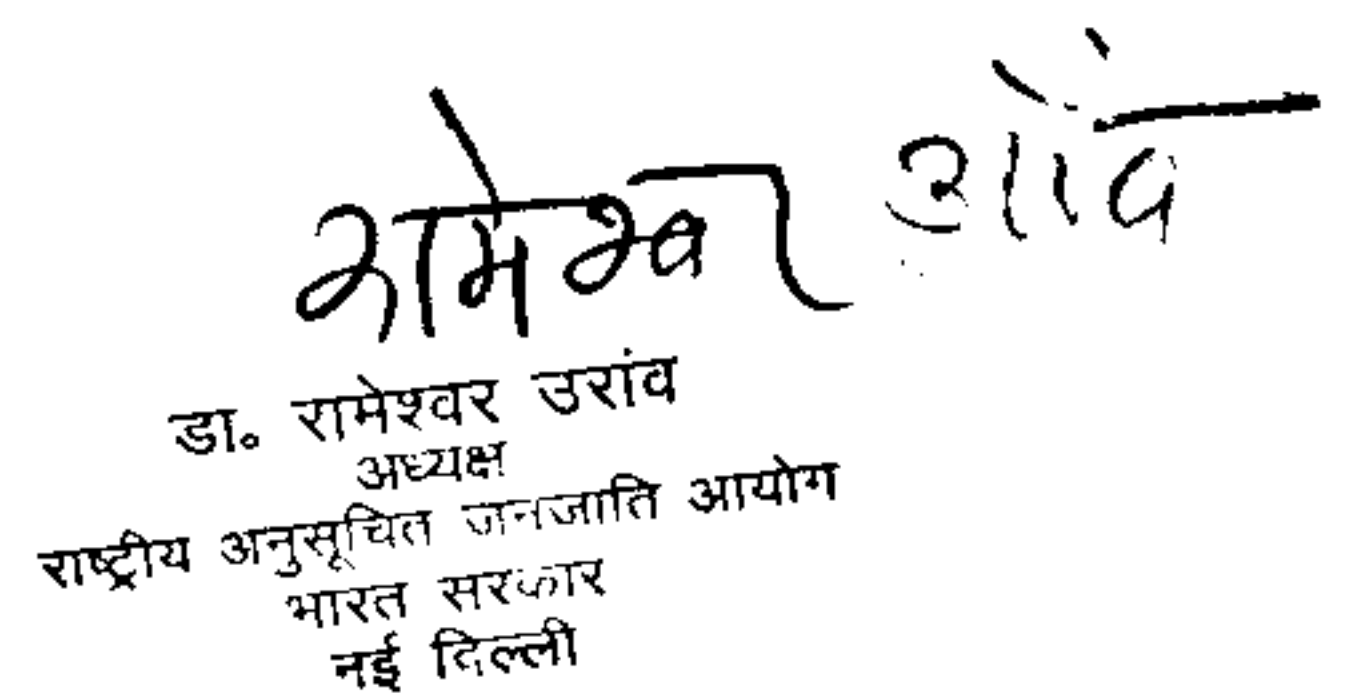 रामेश्वर उरांव
डा. रामेश्वर उरांव
अध्यक्ष
राष्ट्रीय अनुसूचित जनजाति आयोग
भारत सरकार
नई दिल्ली